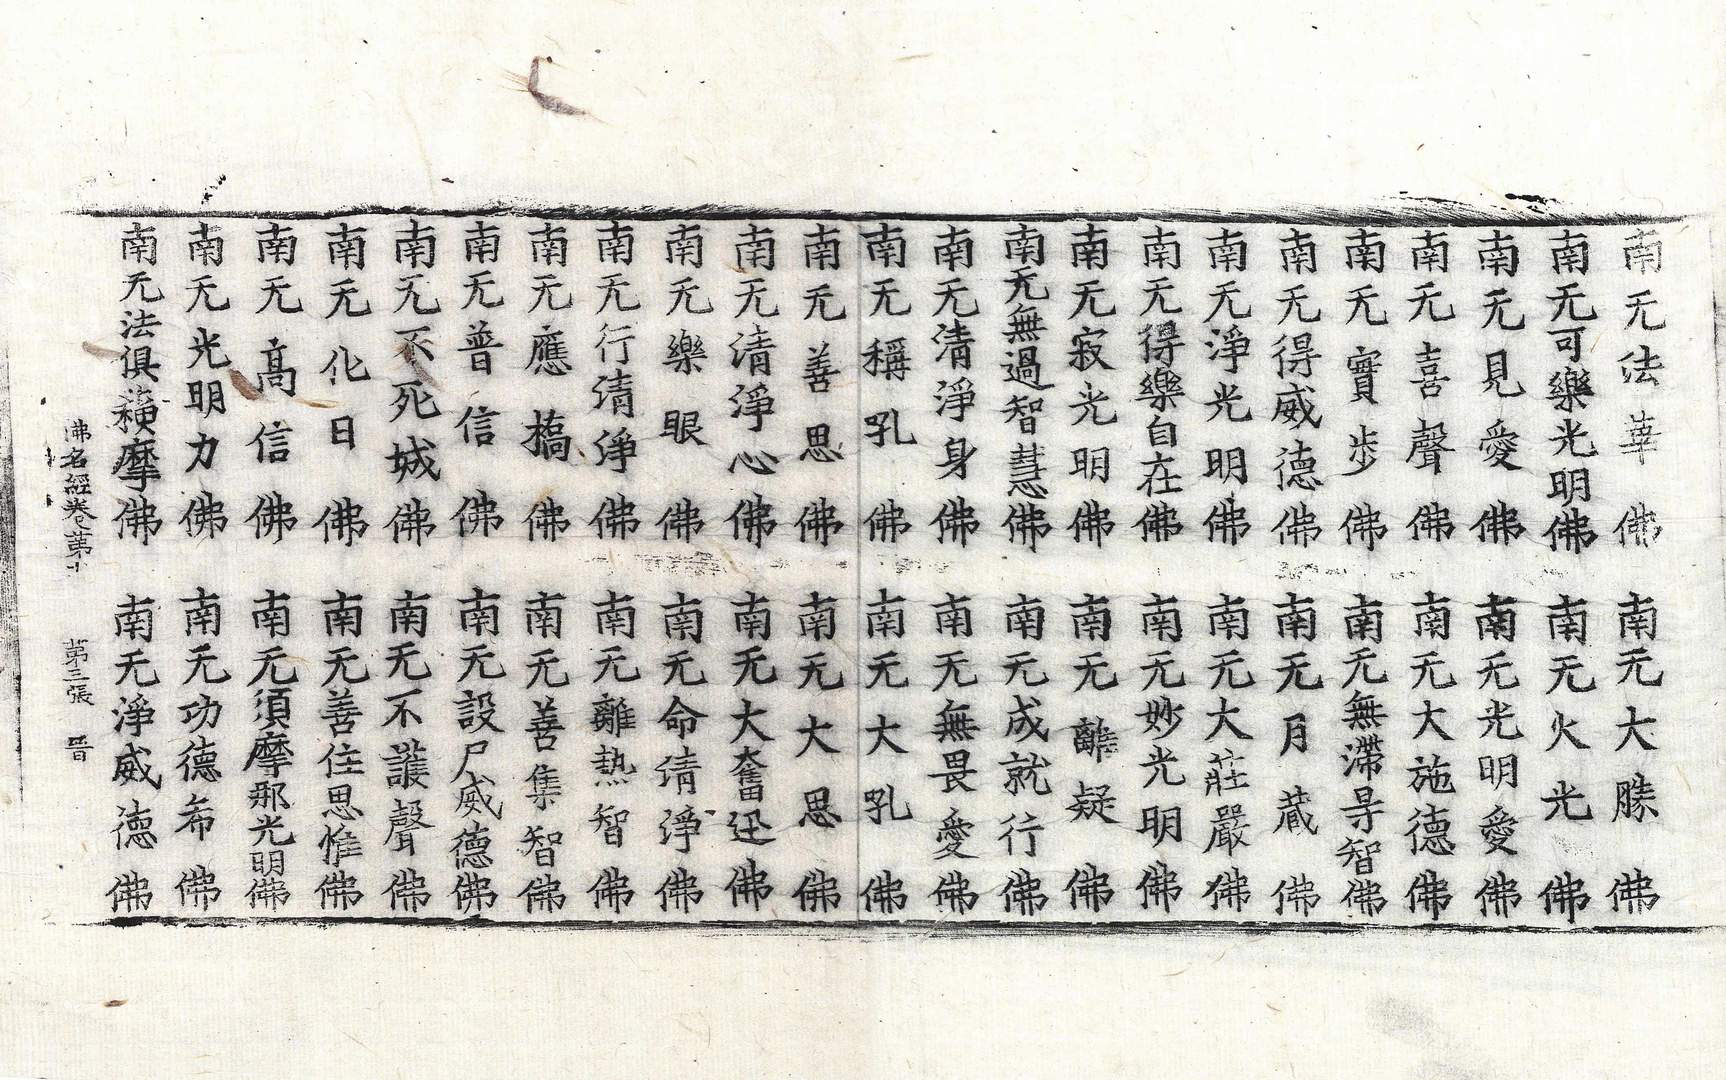 南无法華佛　南无大勝佛
南无可樂光明佛　南无火光佛
南无見愛佛　南无光明愛佛
南无喜聲佛　南无大施德佛
南无寶步佛　南无無滯㝵智佛
南无得威德佛　南无月藏佛
南无淨光明佛　南无大莊嚴佛
南无得樂自在佛　南无妙光明佛
南无寂光明佛　南无離疑佛
南无無過智慧佛　南无成就行佛
南无清淨身佛　南无無畏愛佛
南无稱吼佛　南无大吼佛
南无善思佛　南无大思佛
南无清淨心佛　南无大奮迅佛
南无樂眼佛　南无命清淨佛
南无行清淨佛　南无離熱智佛
南无應橋佛　南无善集智佛
南无普信佛　南无設尸威德佛
南无不死城佛　南无不護聲佛
南无化日佛　南无善住思惟佛
南无高信佛　南无須摩那光明佛
南无光明力佛　南无功德希佛
南无法俱穌摩佛　南无淨威德佛
佛名經卷第十　第三張　晉